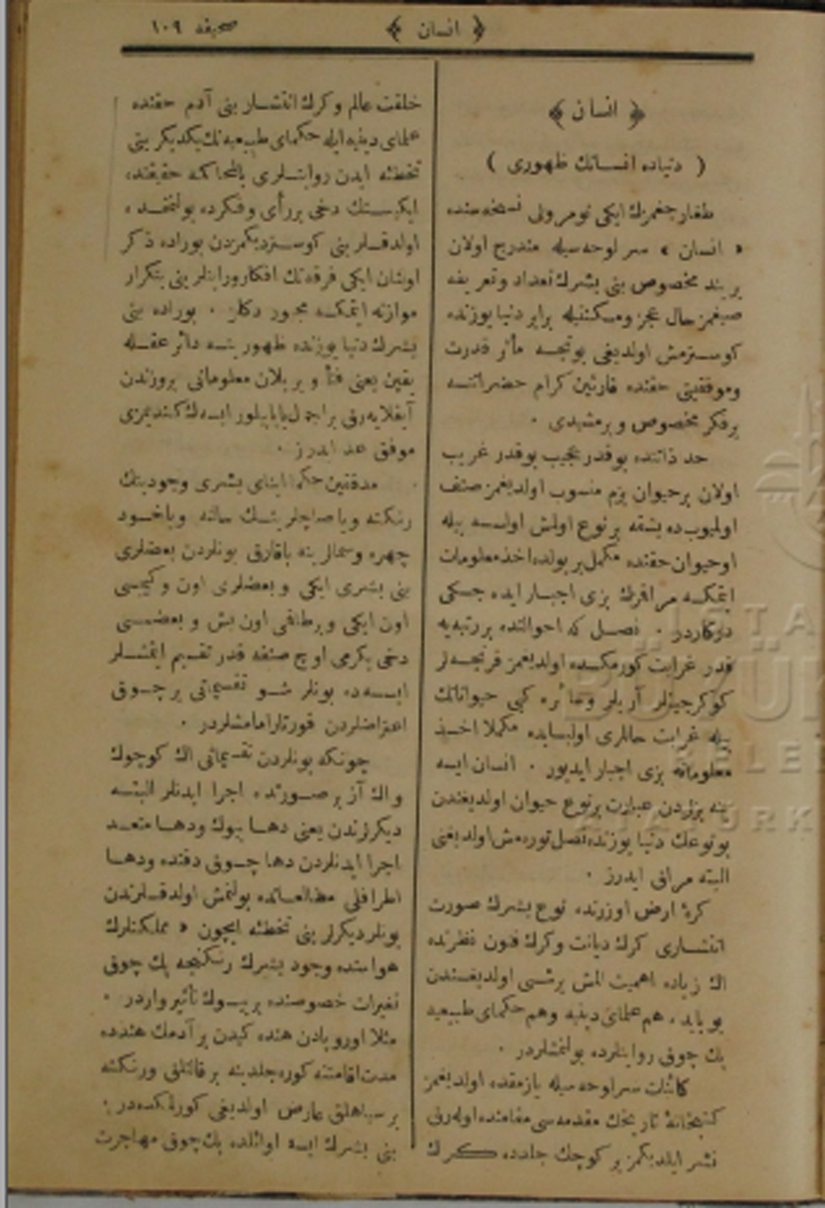 ﴿ انسان ﴾
صحيفه ١٠٩
﴿ انسان ﴾
( دنياده انسانك ظهورى )
طغارجغمزك ايكى نومرولى نسخه سنده
« انسان » سر لوحه سيله مندرج اولان
بر بند مخصوص بنى بشرك تعداد وتعريفه
صيغمز حال عجز ومسكنتيله برابر دنيا يوزنده
كوسترمش اولديغى بونجه مآثر قدرت
وموفقيتى حقنده قارئين كرام حضراتنه
برفكر مخصوص ويرمشيدى .
حد ذاتنده بوقدر عجيب بوقدر غريب
اولان برحيوان بزم منسوب اولديغمز صنف
اولميوب ده بشقه برنوع اولمش اولسه بيله
اوحيوان حقنده مكمل بر يولده اخذ معلومات
ايتمكه مراقمزك بزى اجبار ايده جكى
دركاردر . نصل كه احوالنده بر رتبه يه
قدر غرابت كورمكده اولديغمز قرنجه لر
كوكرجينلر آريلر وسائره كبى حيواناتك
بيله غرابت حاللرى اولبابده مكملا اخذ
معلوماته بزى اجبار ايديور . انسان ايسه
ينه بزلردن عبارت برنوع حيوان اولديغندن
بونوعك دنيا يوزنده نصل تورەمش اولديغنى
البته مراق ايدرز .
كرۀ ارض اوزرنده نوع بشرك صورت
انتشارى كرك ديانت وكرك فنون نظرنده
اك زياده اهميت آلمش برشى اولديغندن
بو بابده هم علماى دينيه وهم حكماى طبيعيه
پك چوق روايتلرده بولنمشلردر .
كائنات سرلوحه سيله يازمقده اولديغمز
كتبخانۀ تاريخك مقدمه سى مقامنده اوله رق
نشر ايلديكمز بر كوچك جلدده كرك
خلقت عالم وكرك انتشار بنى آدم حقنده
علماى دينيه ايله حكماى طبيعيه نك يكديكرينى
تخطئه ايدن روايتلرى بالمحاكمه حقيقتده
ايكيسنك دخى بر رأى وفكرده بولنمقده
اولدقلرينى كوسترديكمزدن بوراده ذكر
اولنان ايكى فرقه نك افكار وروايتلرينى بتكرار
موازنه ايتمكه مجبور دكلز . بوراده بنى
بشرك دنيا يوزنده ظهورينه دائر عقله
يقين يعنى فناً ويريلان معلوماتى بروزندن
آيقلايه رق بر اجمال ياپابيلور ايسەك كنديمزى
موفق عد ايدرز .
مدققين حكما ابناى بشرى وجودينك
رنكنه وياصاچلرينك سائنه وياخود
چهره وسيمالرينه باقارق بونلردن بعضلرى
بنى بشرى ايكى و بعضلرى اون وكيمىسى
اون ايكى و برطاقمى اون بش و بعضيسى
دخى يكرمى اوچ صنفه قدر تقسيم ايتمشلر
ايسه ده بونلر شو تقسيماتى بر چوق
اعتراضلردن قورتارامامشلردر .
چونكه بونلردن تقسيماتى اك كوچوك
و اك آز بر صورتده اجرا ايدنلر البته
ديكرلرندن يعنى دها بيوك ودها متعدد
اجرا ايدنلردن دها چوق دقتده ودها
اطرافلى مطالعاتده بولنمش اولدقلرندن
بونلر ديكرلرينى تخطئه ايچون « مملكتلرك
هواسنده وجود بشرك رنكنجه پك چوق
تغيرات خصوصنده بر بيوك تأثير واردر .
مثلا اوروپادن هنده كيدن بر آدمك هندده
مدت اقامتنه كوره جلدينه بر قاتلق ورنكنه
بر سياهلق عارض اولديغى كورلكده در .
بنى بشرك ايسه اوائلده پك چوق مهاجرت